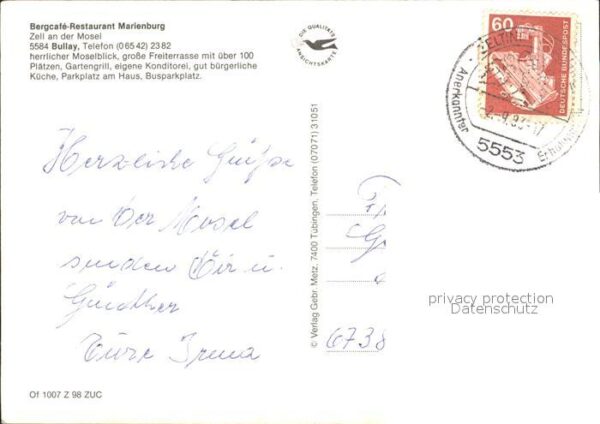 Bergcafé-Restaurant Marienburg
Zell an der Mosel
5584 Bullay, Telefon (06542) 2382
herrlicher Moselblick, große Freiterrasse mit über 100
Plätzen, Gartengrill, eigene Konditorei, gut bürgerliche
Küche, Parkplatz am Haus, Busparkplatz.
DIE QUALITÄTS
ANSICHTSKARTE
60
DEUTSCHE BUNDESPOST
ELTIN
-2.-9.83-17
Anerkannter
5553
Erholungs
Herzliche Grüße
von der Mosel
senden Dir u.
Günther
Eure Irma
© Verlag Gebr. Metz, 7400 Tübingen, Telefon (07071) 31051
6738
privacy protection
Datenschutz
Of 1007 Z 98 ZUC